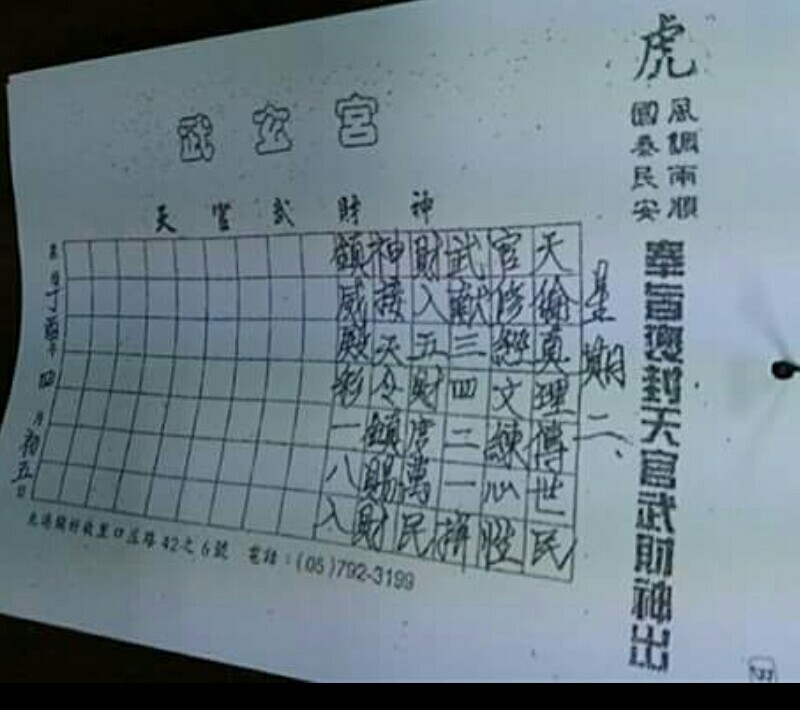 虎
風調雨順
國泰民安
奉旨褒封天官武財神出
武玄宮
天官武財神
星期二、
天倫真理傳世民
官修經文練心性
武獻三四二一拼
財入五財庫萬民
神接天令鎮賜財
領威殿彩一八入
丁酉年四月初五日
北港鎮好收里口庄路42之6號 電話：(05)792-3199